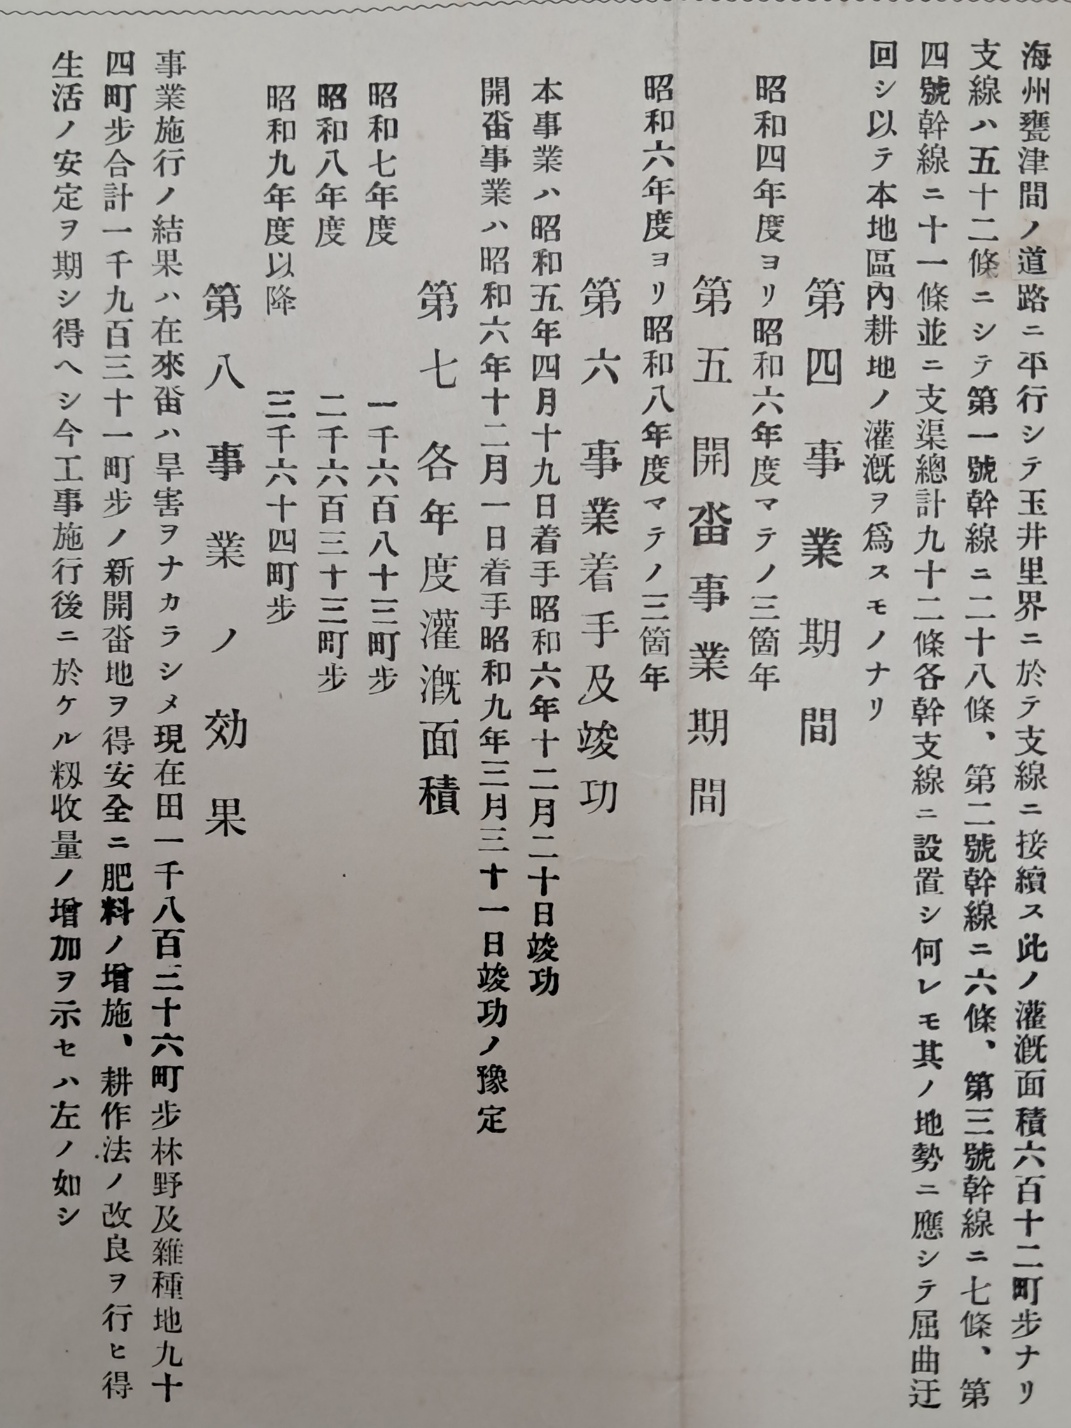 海州甕津間ノ道路ニ平行シテ玉井里界ニ於テ支線ニ接續ス此ノ灌漑面積六百十二町步ナリ
支線ハ五十二條ニシテ第一號幹線ニ二十八條、第二號幹線ニ六條、第三號幹線ニ七條、第
四號幹線ニ十一條並ニ支渠總計九十二條各幹支線ニ設置シ何レモ其ノ地勢ニ應シテ屈曲迂
回シ以テ本地區內耕地ノ灌漑ヲ爲スモノナリ
第四 事業期間
昭和四年度ヨリ昭和六年度マテノ三箇年
第五 開畓事業期間
昭和六年度ヨリ昭和八年度マテノ三箇年
第六 事業着手及竣功
本事業ハ昭和五年四月十九日着手昭和六年十二月二十日竣功
開畓事業ハ昭和六年十二月一日着手昭和九年三月三十一日竣功ノ豫定
第七 各年度灌漑面積
昭和七年度 一千六百八十三町步
昭和八年度 二千六百三十三町步
昭和九年度以降 三千六十四町步
第八 事業ノ効果
事業施行ノ結果ハ在來畓ハ旱害ヲナカラシメ現在田一千八百三十六町步林野及雜種地九十
四町步合計一千九百三十一町步ノ新開畓地ヲ得安全ニ肥料ノ增施、耕作法ノ改良ヲ行ヒ得
生活ノ安定ヲ期シ得ヘシ今工事施行後ニ於ケル籾收量ノ增加ヲ示セハ左ノ如シ